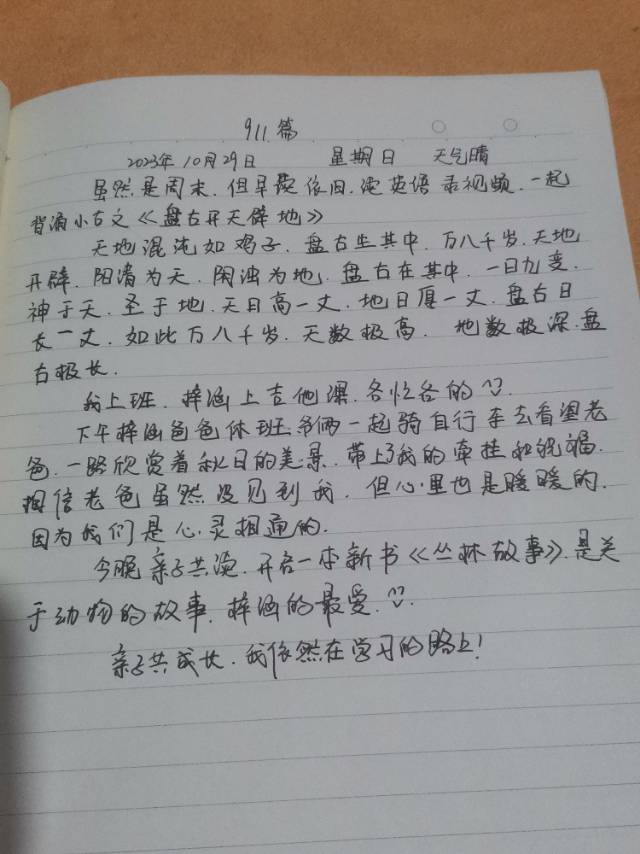 911篇
2023年10月29日 星期日 天气晴
虽然是周末,但早读依旧,读英语录视频,一起
背诵小古文《盘古开天辟地》
天地混沌如鸡子,盘古生其中,万八千岁,天地
开辟,阳清为天,阴浊为地,盘古在其中,一日九变,
神于天,圣于地,天日高一丈,地日厚一丈,盘古日
长一丈,如此万八千岁,天数极高,地数极深,盘
古极长.
我上班,梓涵上吉他课,各忙各的
下午梓涵爸爸休班,爷俩一起骑自行车去看望老
爸,一路欣赏着秋日的美景,带上了我的牵挂和祝福.
相信老爸虽然没见到我,但心里也是暖暖的,
因为我们是心灵相通的.
今晚亲子共读,开启一本新书《丛林故事》,是关
于动物的故事,梓涵的最爱.
亲子共成长,我依然在学习的路上!